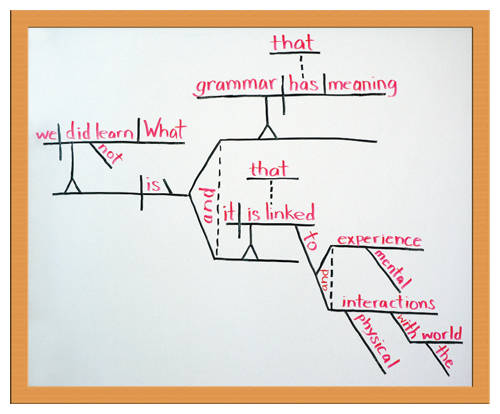 that
grammar has meaning
we did learn What
not
is
and
that
it is linked
to
experience
mental
and
interactions
physical
with world
the